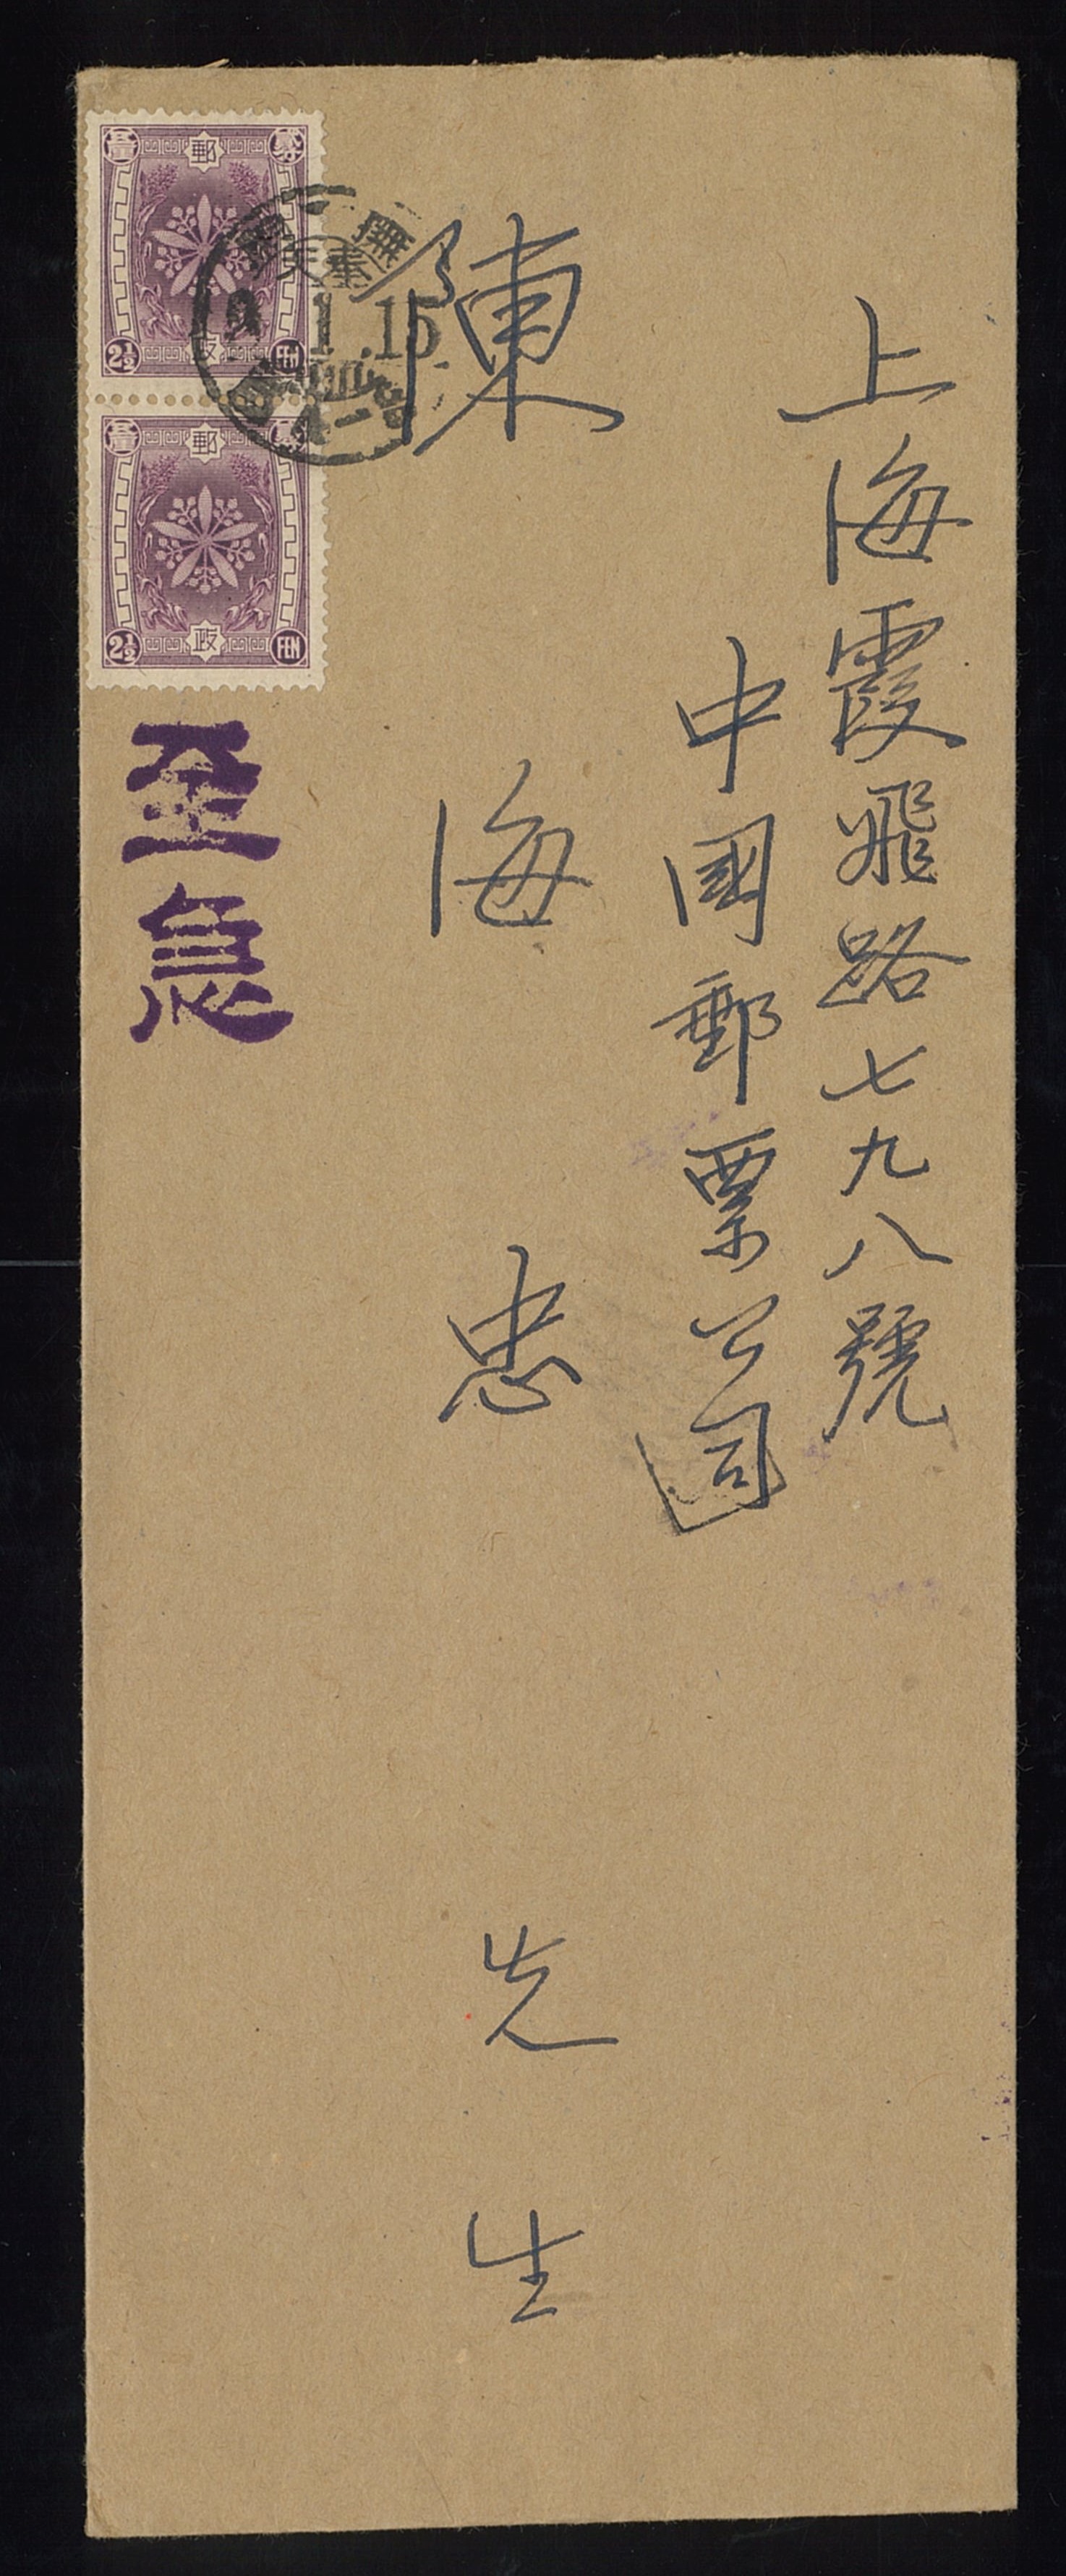 上海霞飛路七九八號
中國郵票公司
陳海忠先生
至急
郵
政
2½
9.1.15
奉天
撫
郵
政
2½ FEN